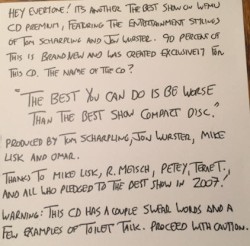 HEY EVERYONE! ITS ANOTHER THE BEST SHOW ON WFMU
CD PREMIUM, FEATURING THE ENTERTAINMENT STYLINGS
OF TOM SCHARPLING AND JON WURSTER. 90 PERCENT OF
THIS IS BRAND NEW AND WAS CREATED EXCLUSIVELY FOR
THIS CD. THE NAME OF THE CD?
"THE BEST YOU CAN DO IS BE WORSE
THAN THE BEST SHOW COMPACT DISC."
PRODUCED BY TOM SCHARPLING, JON WURSTER, MIKE
LISK AND OMAR.
THANKS TO MIKE LISK, R. METSCH, PETEY, TERRE T,
AND ALL WHO PLEDGED TO THE BEST SHOW IN 2007!
WARNING: THIS CD HAS A COUPLE SWEAR WORDS AND A
FEW EXAMPLES OF TOILET TALK. PROCEED WITH CAUTION.